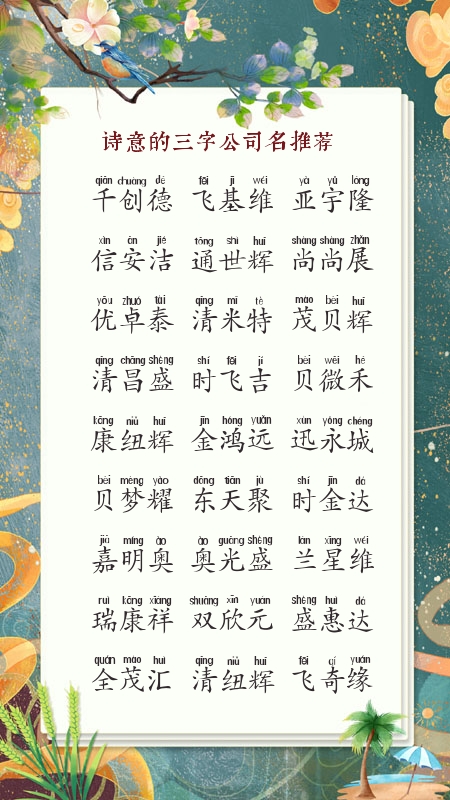 诗意的三字公司名推荐
qiān chuàng dé fēi jī wéi yà yǔ lóng
千创德 飞基维 亚宇隆
xìn ān jié tōng shì huī shàng shàng zhǎn
信安洁 通世辉 尚尚展
yōu zhuó tài qīng mǐ tè mào bèi huī
优卓泰 清米特 茂贝辉
qīng chāng shèng shí fēi jí bèi wēi hé
清昌盛 时飞吉 贝微禾
kāng niǔ huī jīn hóng yuǎn xùn yǒng chéng
康纽辉 金鸿远 迅永城
bèi mèng yào dōng tiān jù shí jīn dá
贝梦耀 东天聚 时金达
jiā míng ào ào guāng shèng lán xīng wéi
嘉明奥 奥光盛 兰星维
ruì kāng xiáng shuāng xīn yuán shèng huì dá
瑞康祥 双欣元 盛惠达
quán mào huì qīng niǔ huī fēi qí yuán
全茂汇 清纽辉 飞奇缘